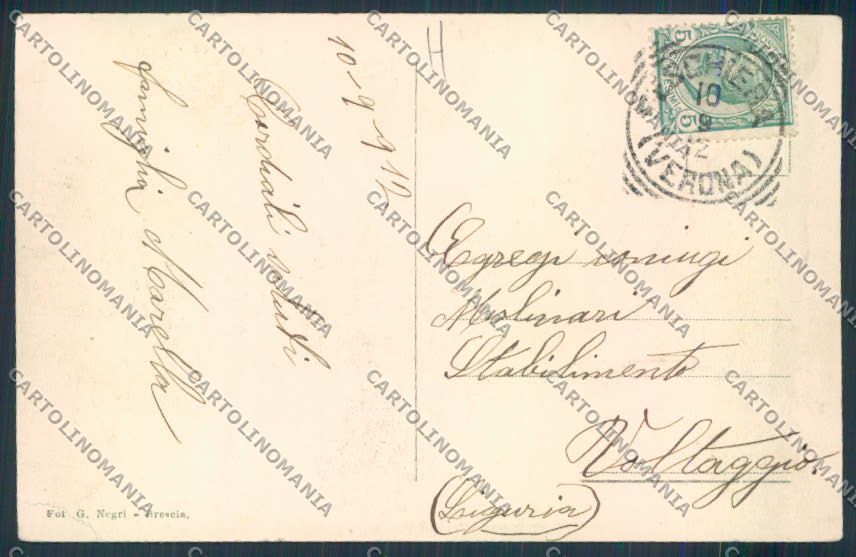 10-9-912
Cordiali saluti
famiglia Marella
Egregi coniugi
Molinari
Stabilimento
Voltaggio.
(Liguria)
Fot G. Negri - Brescia.
10
9
12
(VERONA)
5 5
CARTOLINOMANIA